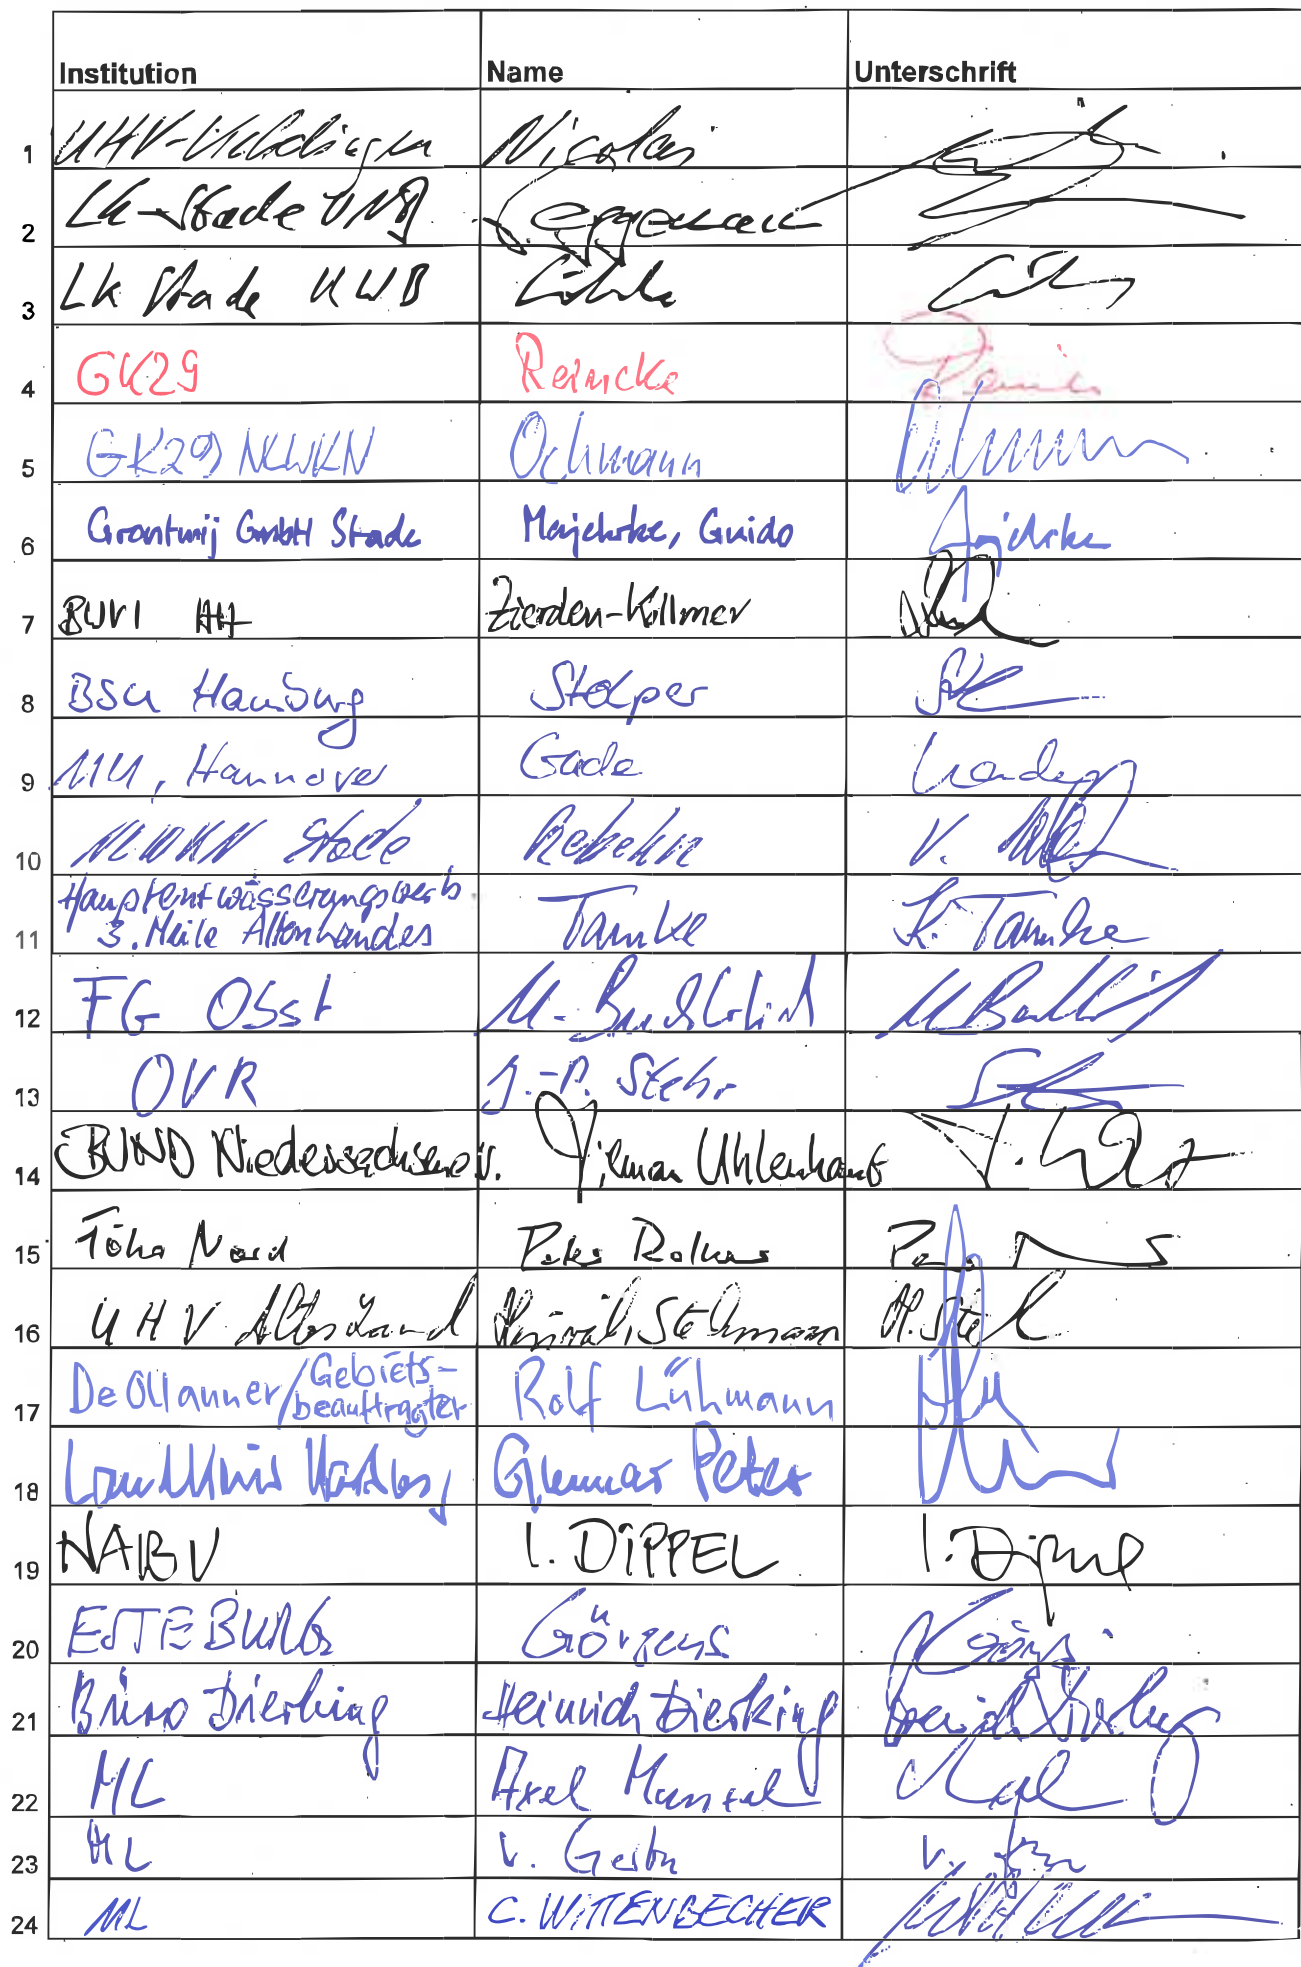 Institution Name Unterschrift
1 UHV-Kehdingen Nicolai
2 LK-Stade UNB
3 LK Stade UWB
4 GK29 Reinicke
5 GK29 NLWKN Ochmann
6 Grontmij GmbH Stade Majehrke, Guido
7 BWVI HH Zierden-Killmer
8 BSU Hamburg Stolper
9 MU, Hannover Gade
10 NLWKN Stade Rebehn
11 Hauptentwässerungsverb
3. Meile Altenlandes Tamke K. Tamke
12 FG Obst M.
13 OVR J.-P. Stehr
14 BUND Niedersachsen e.V. Tilman Uhlenhaut
15 Föko Nord Peter Rolker
16 UHV Altes Land Heinrich Stehmann H. Ste
17 De Ollanner/Gebiets-
beauftragter Rolf Lühmann
18 Landkreis Harburg Gunnar Peter
19 NABU I. DIPPEL I. Dippel
20 ESTEBURG Görgens
21 Büro Dierking Heinrich Dierking Heinrich Dierking
22 ML Axel
23 ML v.
24 ML C. WITTENBECHER